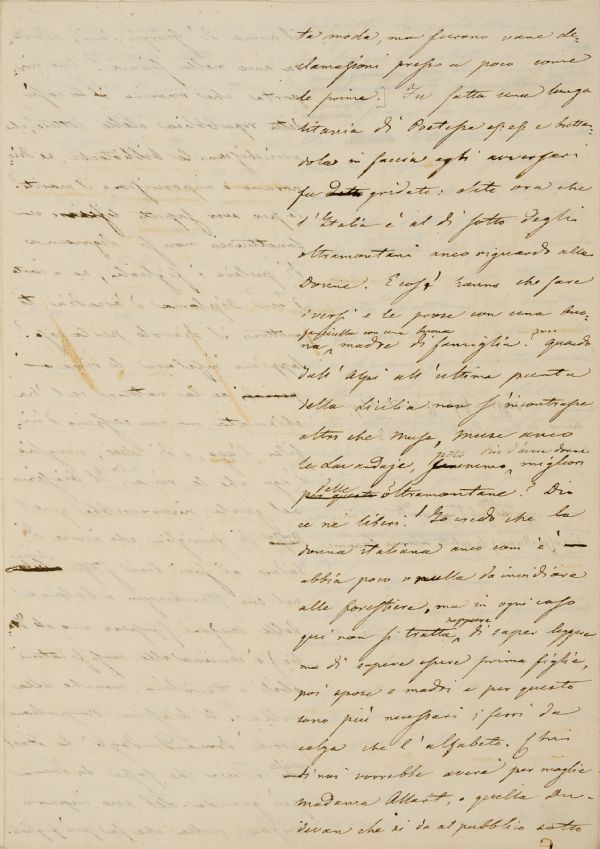 ta moda, ma furono vane de=
clamazioni presso a poco come
le prime. Fu fatta una lunga
litania di Poetesse ec. ec. e butta=
dola in faccia agli avversari
fu gridato: dite ora che
l'Italia è al di sotto degli
oltramontani anco riguardo alle
Donne. E così hanno che fare
i versi e le prose con una buo=
fanciulla con una buona
na madre di famiglia? quando
dall'Alpi all'ultima punta
della Sicilia non s'incontrasse
altro che Muse, Muse anco
le Lavandaje, potremo dire d'avere donne migliori
per questo delle Oltramontane? Dio
ce ne liberi! Io credo che la
donna italiana anco com'è
abbia poco o nulla da invidiare
alle forestiere, ma in ogni caso
neppure
qui non si tratta di saper leggere
ma di sapere essere prima figlie,
poi spose e madri e per questo
sono più necessari i ferri da
calza che l'alfabeto. Chi
di noi vorrebbe avere per moglie
madama Allart, o quella Du=
devan che si dà al pubblico sotto